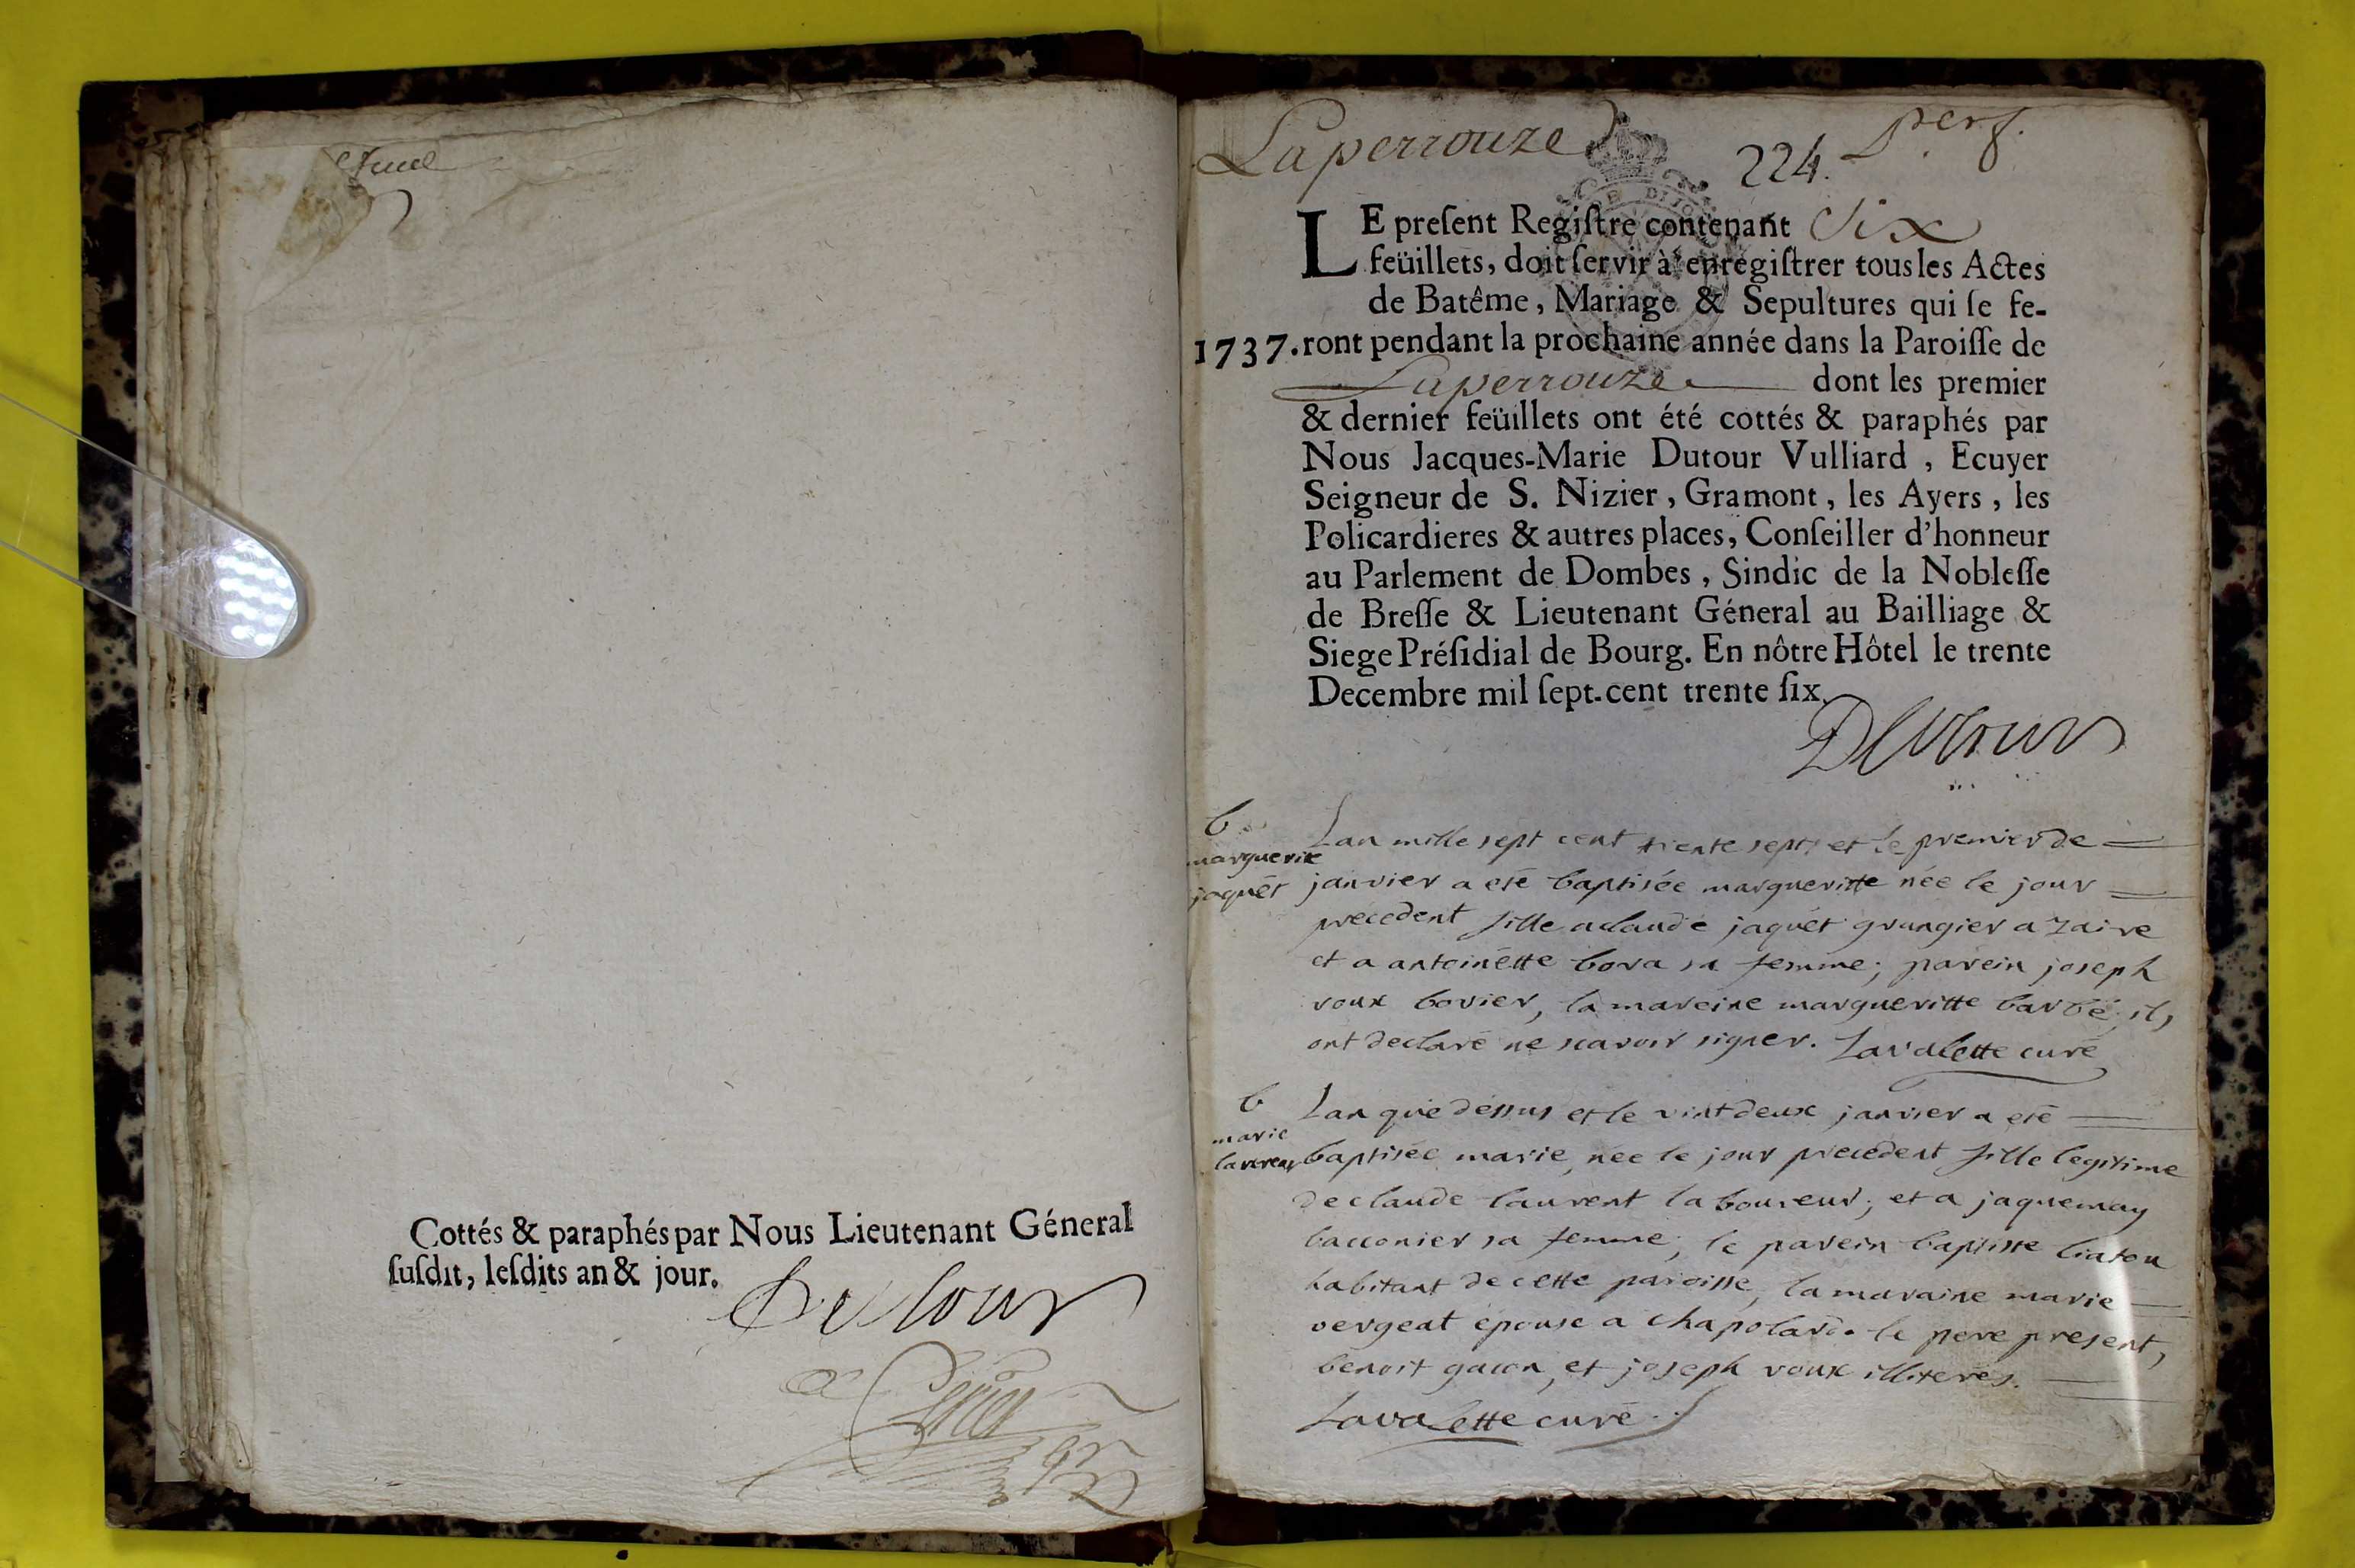 Cottés & paraphés par Nous Lieutenant Géneral
ſuſdit, leſdits an & jour.
Dutour
Laperrouze
224.
LE preſent Regiſtre contenant Six
feüillets, doit ſervir à enregiſtrer tous les Actes
de Batême, Mariage & Sepultures qui ſe fe-
1737. ront pendant la prochaine année dans la Paroiſſe de
Laperrouze dont les premier
& dernier feüillets ont été cottés & paraphés par
Nous Jacques-Marie Dutour Vulliard, Ecuyer
Seigneur de S. Nizier, Gramont, les Ayers, les
Policardieres & autres places, Conſeiller d'honneur
au Parlement de Dombes, Sindic de la Nobleſſe
de Breſſe & Lieutenant Géneral au Bailliage &
Siege Préſidial de Bourg. En nôtre Hôtel le trente
Decembre mil ſept-cent trente ſix.
Dutour
b
marguerite
jaquét
Lan mille sept cent trente sept, et le premier de
janvier a eté baptisée margueritte née le jour
precedent fille a claude jaquét grangier a zaire
et a antoinétte bora sa femme; parein joseph
roux bovier, la mareine margueritte barbé, ils
ont declaré ne scavoir signer. Lavalette curé
b
marie
Lan que déssus et le vint deux janvier a eté
baptisée marie, née le jour precedent fille legitime
de claude laurent laboureur, et a jaquemay
bacconier sa femme, le parein baptiste liaton
habitant de cette paroisse, la maraine marie
vergeat épouse a chapolard. le pere present,
benoit gacon, et joseph roux illiterés.
Lavalette curé.